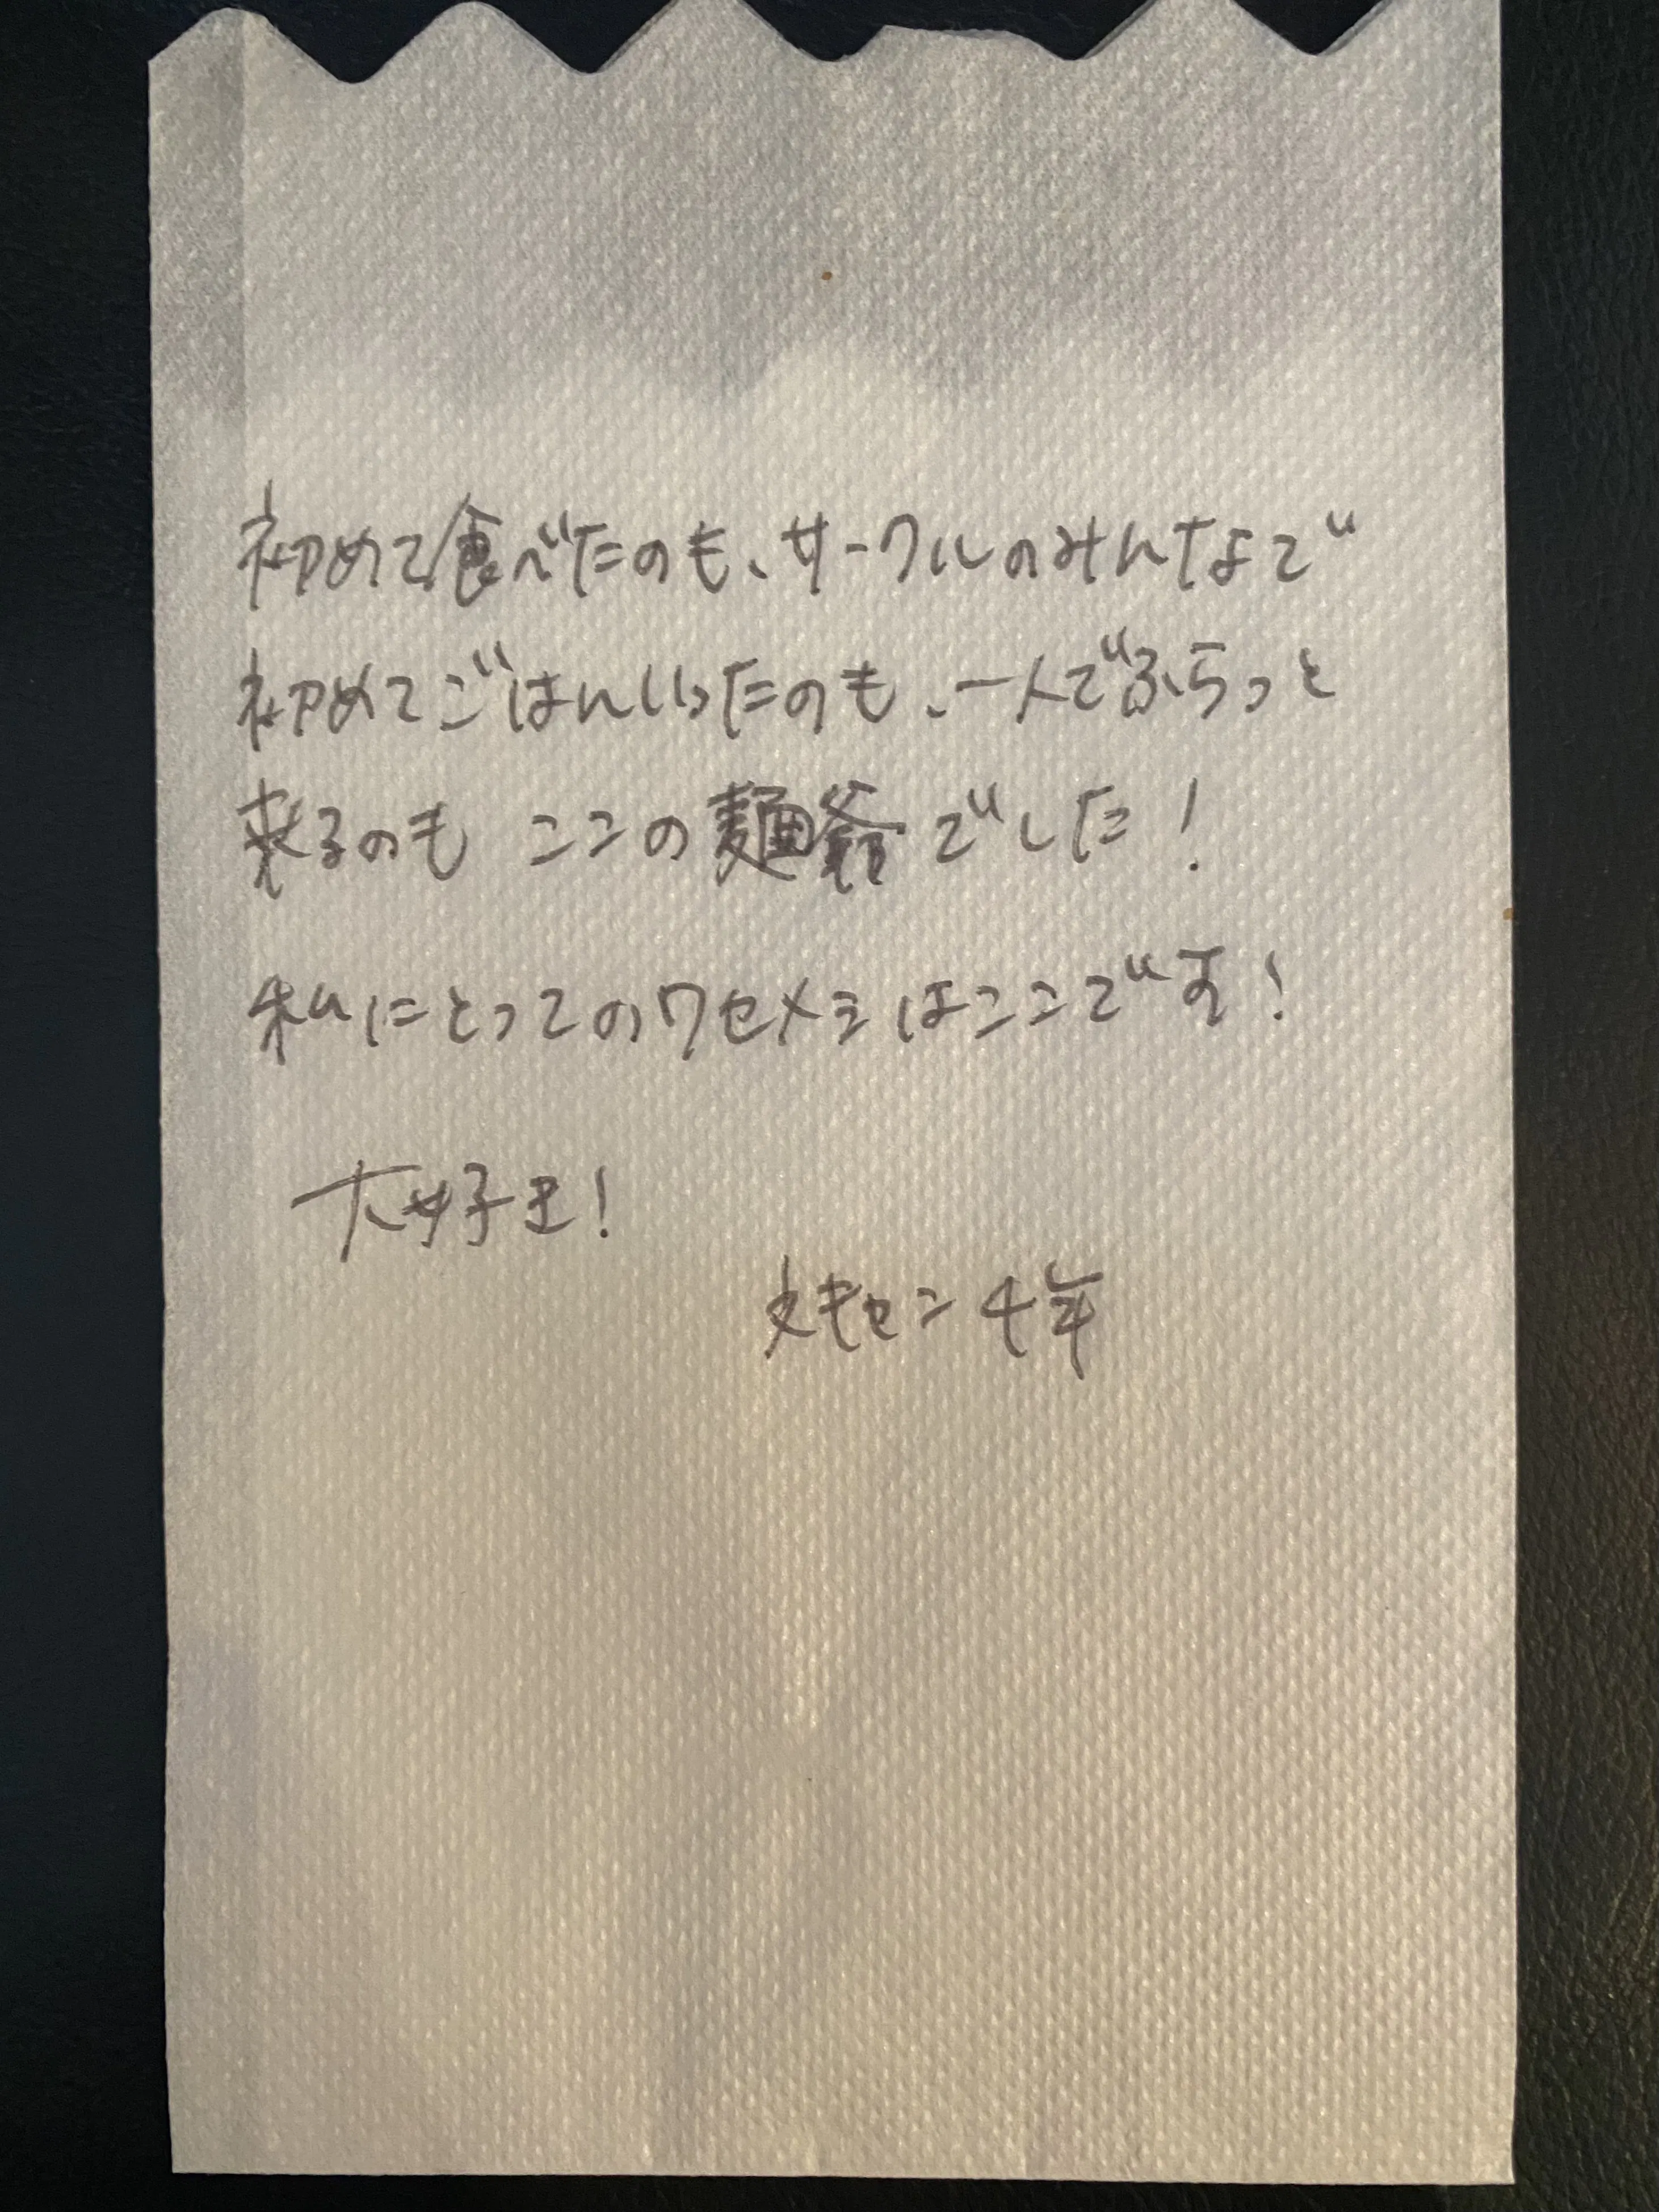 初めて食べたのも、サークルのみんなで
初めてごはんいったのも、一人でふらっと
来るのも ここの麺爺でした！
私にとってのワセメシはここです！
大好き！
文キャン4年